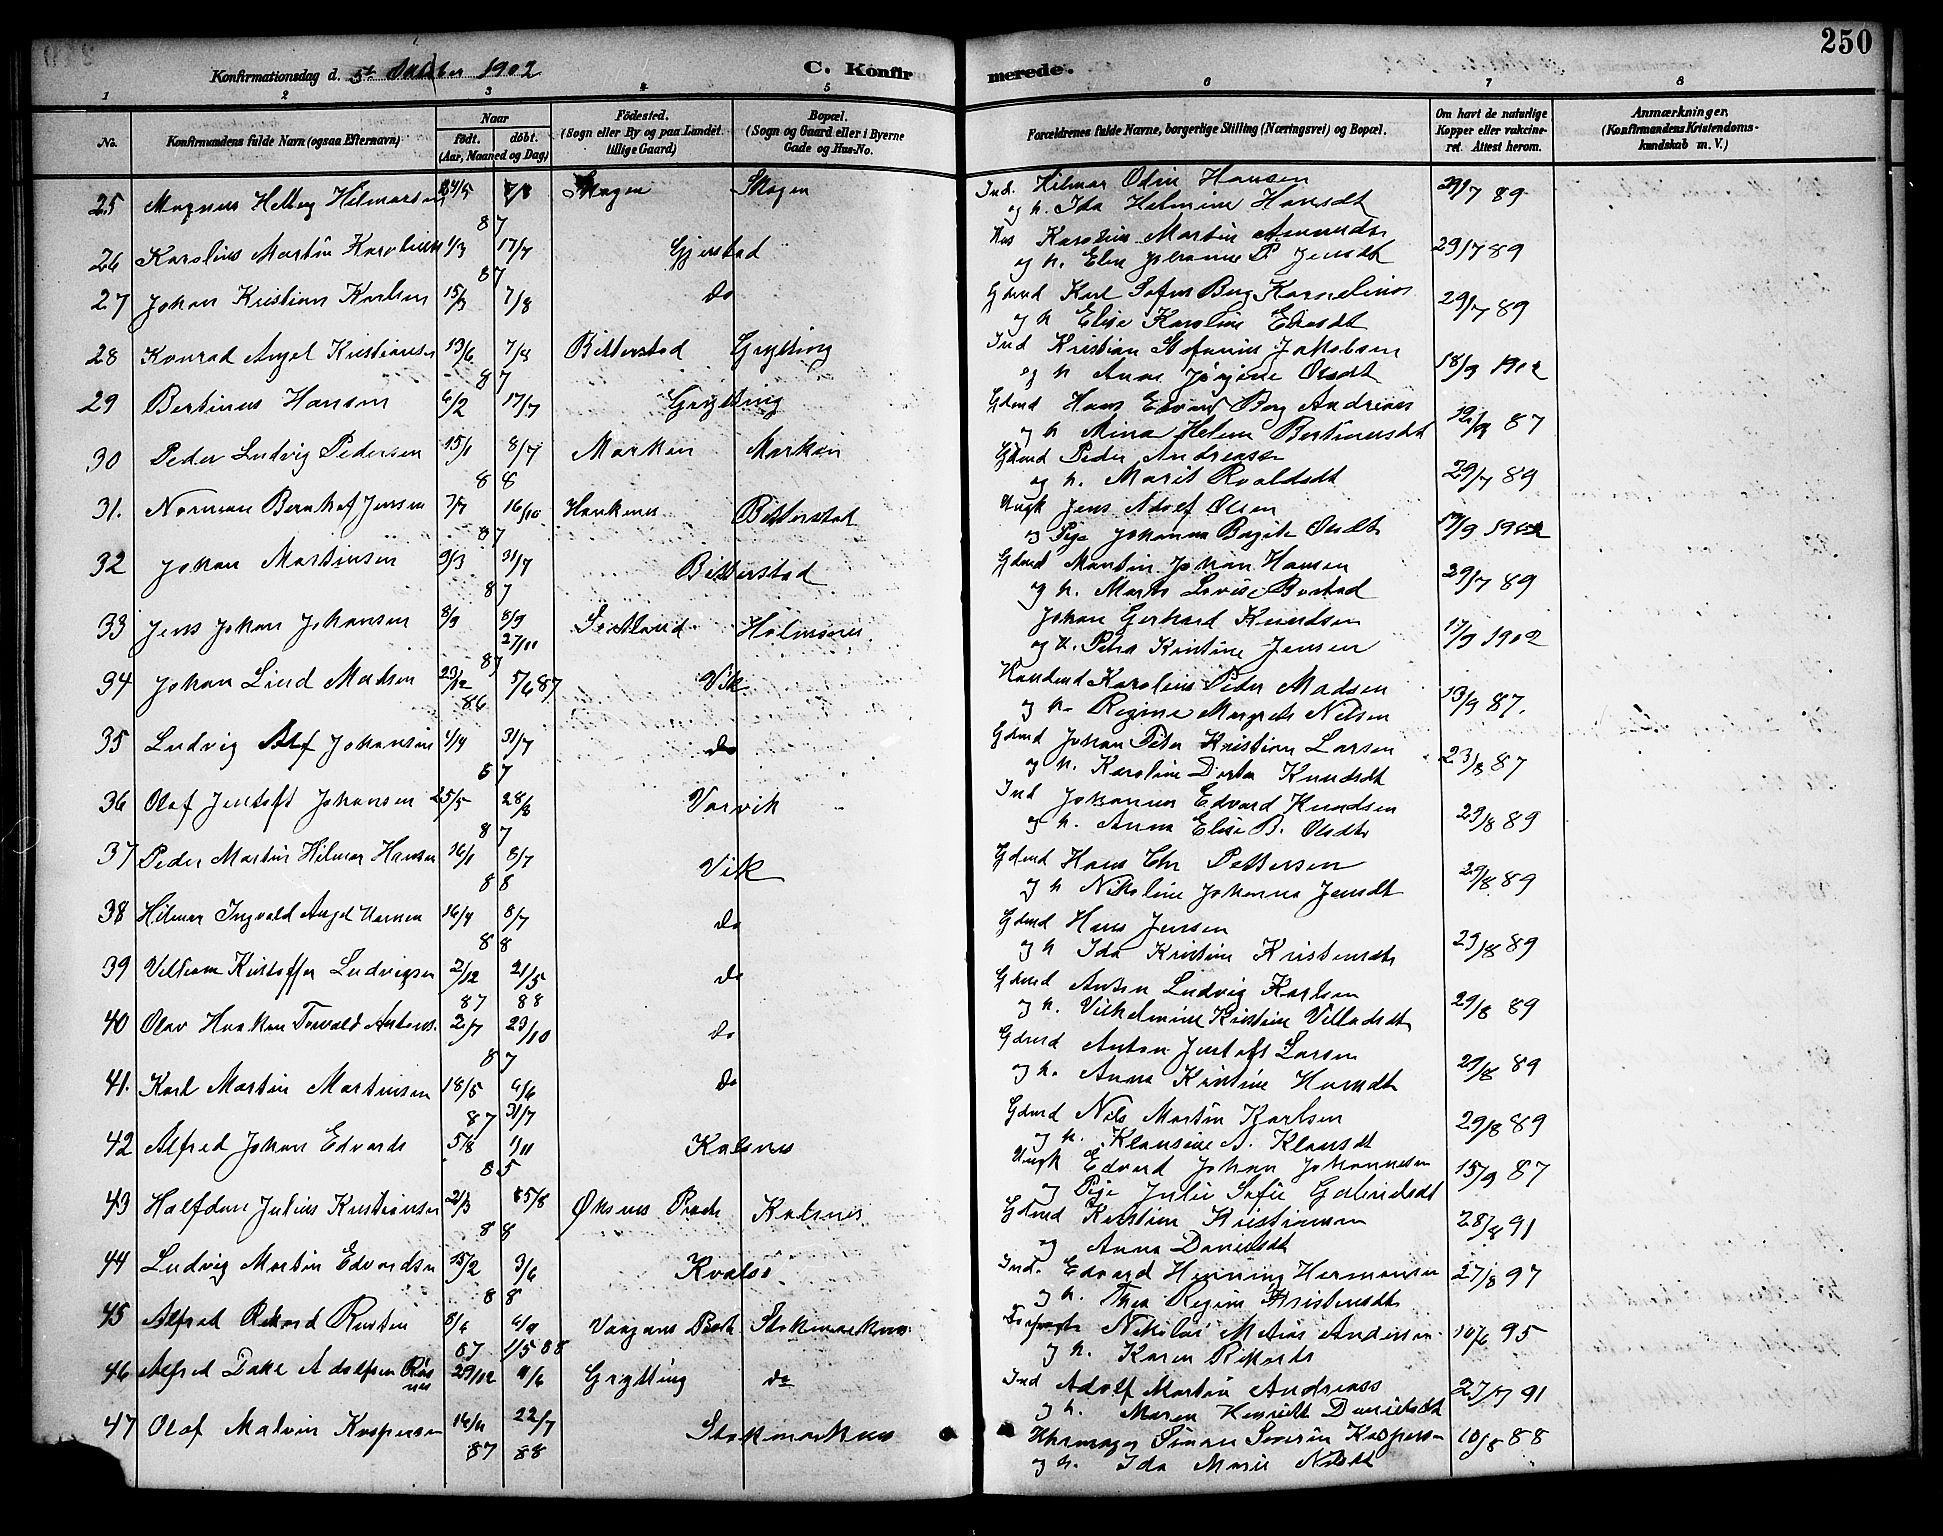 250
Konfirmationsdag d. 5te Oktober 1902 C. Konfirmerede.
1 2 3 4 5 6 7 8
No. Konfirmandens fulde Navn (ogsaa Efternavn) Naar født. døbt. (Aar, Maaned og Dag) Fødested. (Sogn eller By og paa Landet tillige Gaard) Bopæl. (Sogn og Gaard eller i Byerne Gade og Hus-No. Forældrenes fulde Navne, borgerlige Stilling (Næringsvei) og Bopæl. Om havt de naturlige Kopper eller vakcineret. Attest herom. Anmærkninger, (Konfirmandens Kristendomskundskab m. V.)
25 Magnus Helberg Hilmarsen 7/8 87 Skagen Skagen Ind. Hilmar Odin Hansen 29/7 89
og h. Ida Helmine Hansdt
26 Karolius Martin Karoliusen 1/3 17/7 87 Gjerstad Hus Karolius Martin Amunds 29/7 89
og h. Elen Johanne P. Jensdt
27 Johan Kristian Karlsen 15/3 7/8 do Gdmd Karl Sofus Berg Kornelius 29/7 89
og h Elise Karoline Edisdt
28 Konrad Angel Kristiansen 13/6 7/8 87 Bitterstad Grytting Ind Kristian Stefanus Jakobsen 18/9 1902
og h Anne Jørgine Olsdt
29 Bertinus Hansen 6/2 17/7 Grytting Gdmd Hans Edvard Berg Andreas 12/9 87
og h Mina Helene Bertinusdt
30 Peder Ludvig Pedersen 15/1 8/7 88 Marken Marken Gdmd Peder Andreassen 29/7 89
og h. Marit Roaldsdt
31. Norman Bernhof Jensen 7/7 16/10 87 Haukenes Bitterstad Ungk Jens Adolf Olsen 17/9 1902
og Pige Johanna Bergite Olsdt
32 Johan Martinsen 9/3 31/7 87 Bitterstad Gdmd Martin Johan Hansen 29/7 89
og h. Marta Lovise Borstad
33 Jens Johan Johansen 8/9 8/9 27/11 87 Sortland Holmsnes Johan Gerhard Knudsen 17/9 1902
og h. Petra Kristine Jensen
34 Johan Lind Madsen 23/12 86 5/6 87 Vik Handmd Karolius Peder Madsen 13/9 87.
og h. Regine Margrete Nilsen
35 Ludvig Alf Johansen 4/4 31/7 87 do Gdmd Johan Peter Kristian Larsen 23/8 87
og h. Karoline Dorta Knudsdt
36 Olaf Jentoft Johansen 25/5 28/8 87 Vorvik Ind Johannes Edvard Knudsen 29/8 89
og h. Anna Elise B. Olsdt
37 Peder Martin Hilmar Hansen 16/1 8/7 88 Vik Gdmd Hans Chr Pettersen 29/8 89
og h Nikoline Johanna Jensdt
38 Hilmar Ingvald Angel Hansen 16/4 8/7 88 do Gdmd Hans Jensen 29/8 89
og h Ida Kristine Kristensdt
39 Villiam Kristoffer Ludvigsen 2/12 87 21/5 88 do Gdmd Anton Ludvig Karlsen 29/8 89
og h. Vilhelmine Kristine Villadsdt
40 Olav Haakon Torvald Antons. 2/7 23/10 87 do Gdmd Anton Jentoft Larsen 29/8 89
og h. Anna Kristine Hansdt
41. Karl Martin Martinsen 18/5 6/6 31/7 87 do Gdmd Nils Martin Karlsen 29/8 89
og h. Klausine A. Klausdt
42 Alfred Johan Edvards 5/8 1/11 85 Kalsnes Ungk Edvard Johan Johannesen 15/9 87
og Pige Julie Sofie Gabrielsdt
43 Halfdan Julius Kristiansen 2/3 5/8 88 Øksnes Præst. Kalsnes Gdmd Kristian Kristiansen 28/8 91
og Anna Danielsdt
44 Ludvig Martin Edvardsen 15/2 3/6 88 Kvalsø Ind. Edvard Henning Hermansen 27/8 97
og h. Thea Regine Kristensdt
45 Alfred Rikard Rusten 8/6 87 1/5 88 Vaagans Præst Stokmarknes Nikolai Matias Andersen 10/6 95
og h. Karen Rikards
46 Alfred Dahl Adolfsen 29/12 9/6 Grytting do Ind Adolf Martin Andreass 27/7 91
og h. Maren Henriette Danielsdt
47 Olaf Malvin Kaspersen 14/11 87 22/7 88 Stokmarknes Uhrmager Simon Severin Kaspersen 10/8 88
og h. Ida Marie Nilsdt